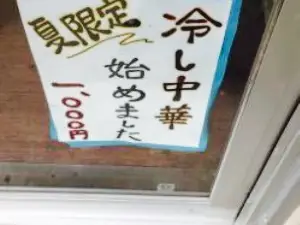 冷し中華
始めました
夏限定
一、000円